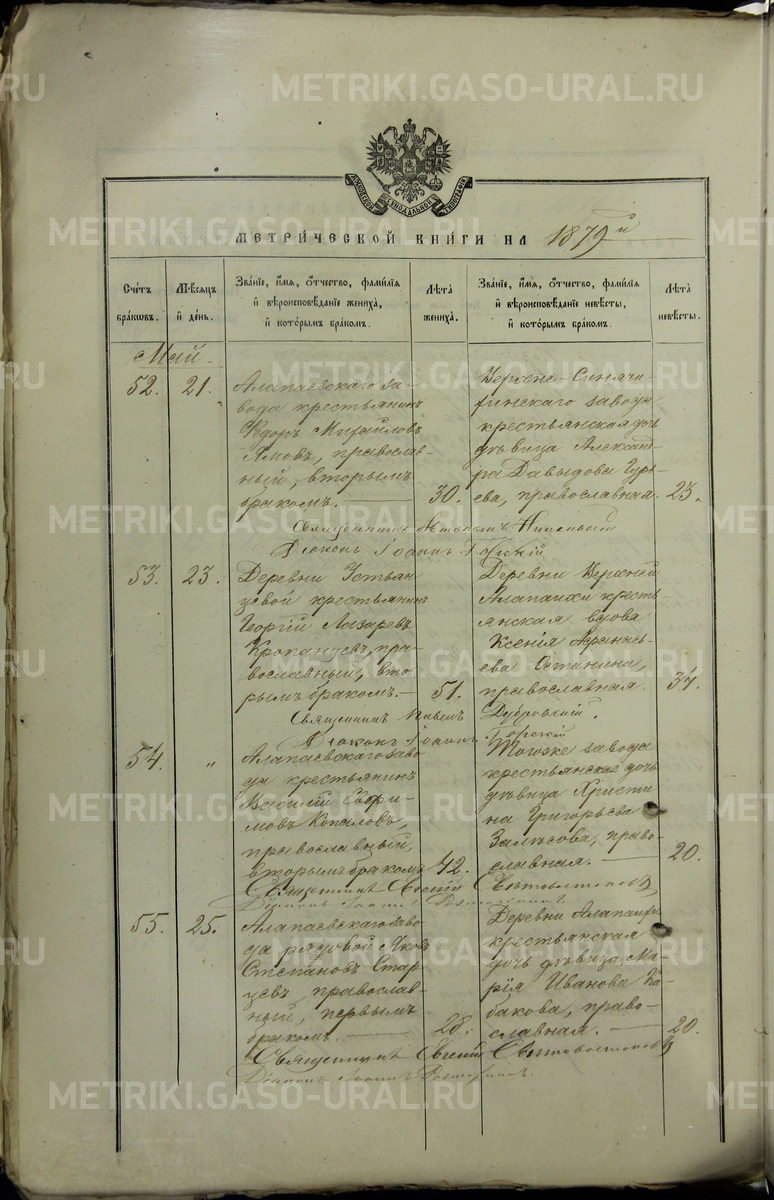 МЕТРИ́ЧЕСКОЙ КНИ́ГИ НА 1879й
Сче́тъ бра́кѡвъ.
Мѣ́сѧцъ и҆ де́нь.
Зва́нїе, и҆́мѧ, ѻ҆́тчество, фами́лїѧ и҆ вѣроисповѣ́данїе жениха̀, и҆ кото́рымъ бра́комъ.
Лѣ́та жениха̀.
Зва́нїе, и҆́мѧ, ѻ҆́тчество, фами́лїѧ и҆ вѣроисповѣ́данїе невѣ́сты, и҆ кото́рымъ бра́комъ.
Лѣ́та невѣ́сты.
Май
52.
21.
Алапаевскаго за-
вода крестьянинъ
Ѳедоръ Михайловъ
Ямовъ, православ-
ный, вторымъ
бракомъ.
30.
Верхне-Синячи
хинскаго завода
крестьянская дочь
дѣвица Александ
ра Давыдова Гурь
ева, православная.
23.
Священникъ
Дiаконъ Iоаннъ
53.
23.
Деревни Устьян
цевой крестьянинъ
Георгiй Лазаревъ
Кропанцевъ, пра-
вославный, вто-
рымъ бракомъ.
51.
Деревни Верхней
Алапаихи кресть-
янская вдова
Ксенiя Аѳанась-
ева Останина,
православная.
37.
Священникъ Павелъ Дубровскiй.
Дiаконъ Iоаннъ
54.
"
Алапаевскаго заво
да крестьянинъ
Василiй Ефи-
мовъ Копаловъ,
православный,
вторымъ бракомъ
42.
Тогоже завода
крестьянская дочь
дѣвица Христи
на Григорьева
православная.
20.
Священникъ Евгенiй
Дiаконъ Iоаннъ
55.
25.
Алапаевскаго заво
да рядовой Яковъ
Степановъ Стар
цевъ, православ-
ный, первымъ
бракомъ.
28.
Деревни Алапаихи
крестьянская
дочь дѣвица Ма-
рiя Иванова Ка-
бакова, право-
славная.
20.
Священникъ Евгенiй
Дiаконъ Iоаннъ
METRIKI.GASO-URAL.RU